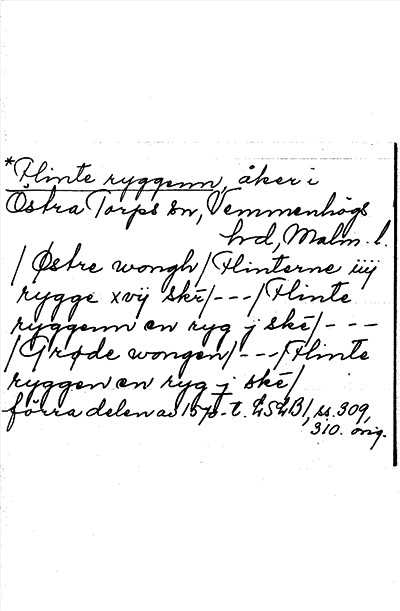 *Flinte ryggenn, åker i
Östra Torps sn, Vemmenhögs
hd, Malm. l.
/Østre wongh/Flinterne iiij
rygge xvij skē/---/Flinte
ryggenn en ryg j skē/---
/Grøde wongen/---/Flinte
ryggen en ryg j skē/
förra delen av 1570-t. LSLB1, ss. 309,
310. orig.